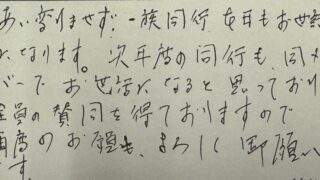 あい変りませず、一族同行 を日もお世話
になります。次年度の同行も、同メ
バーでお世話になると思っており
全員の賛同を得ておりますので
再度のお願も、よろしく御願い
す。